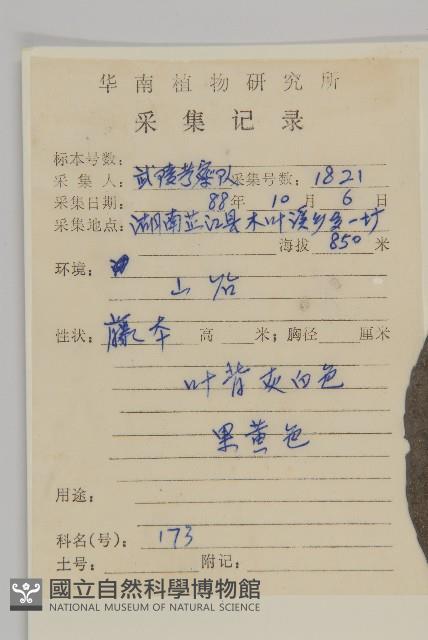 华南植物研究所
采集记录
标本号数：
采集人：武陵考察队 采集号数：1821
采集日期：88年10月6日
采集地点：湖南芷江县木叶溪乡
海拔 850 米
环境：
山谷
性状：藤本 高 米；胸径 厘米
叶背灰白色
果黄色
用途：
科名(号)：173
土号： 附记：
國立自然科學博物館
NATIONAL MUSEUM OF NATURAL SCIENCE